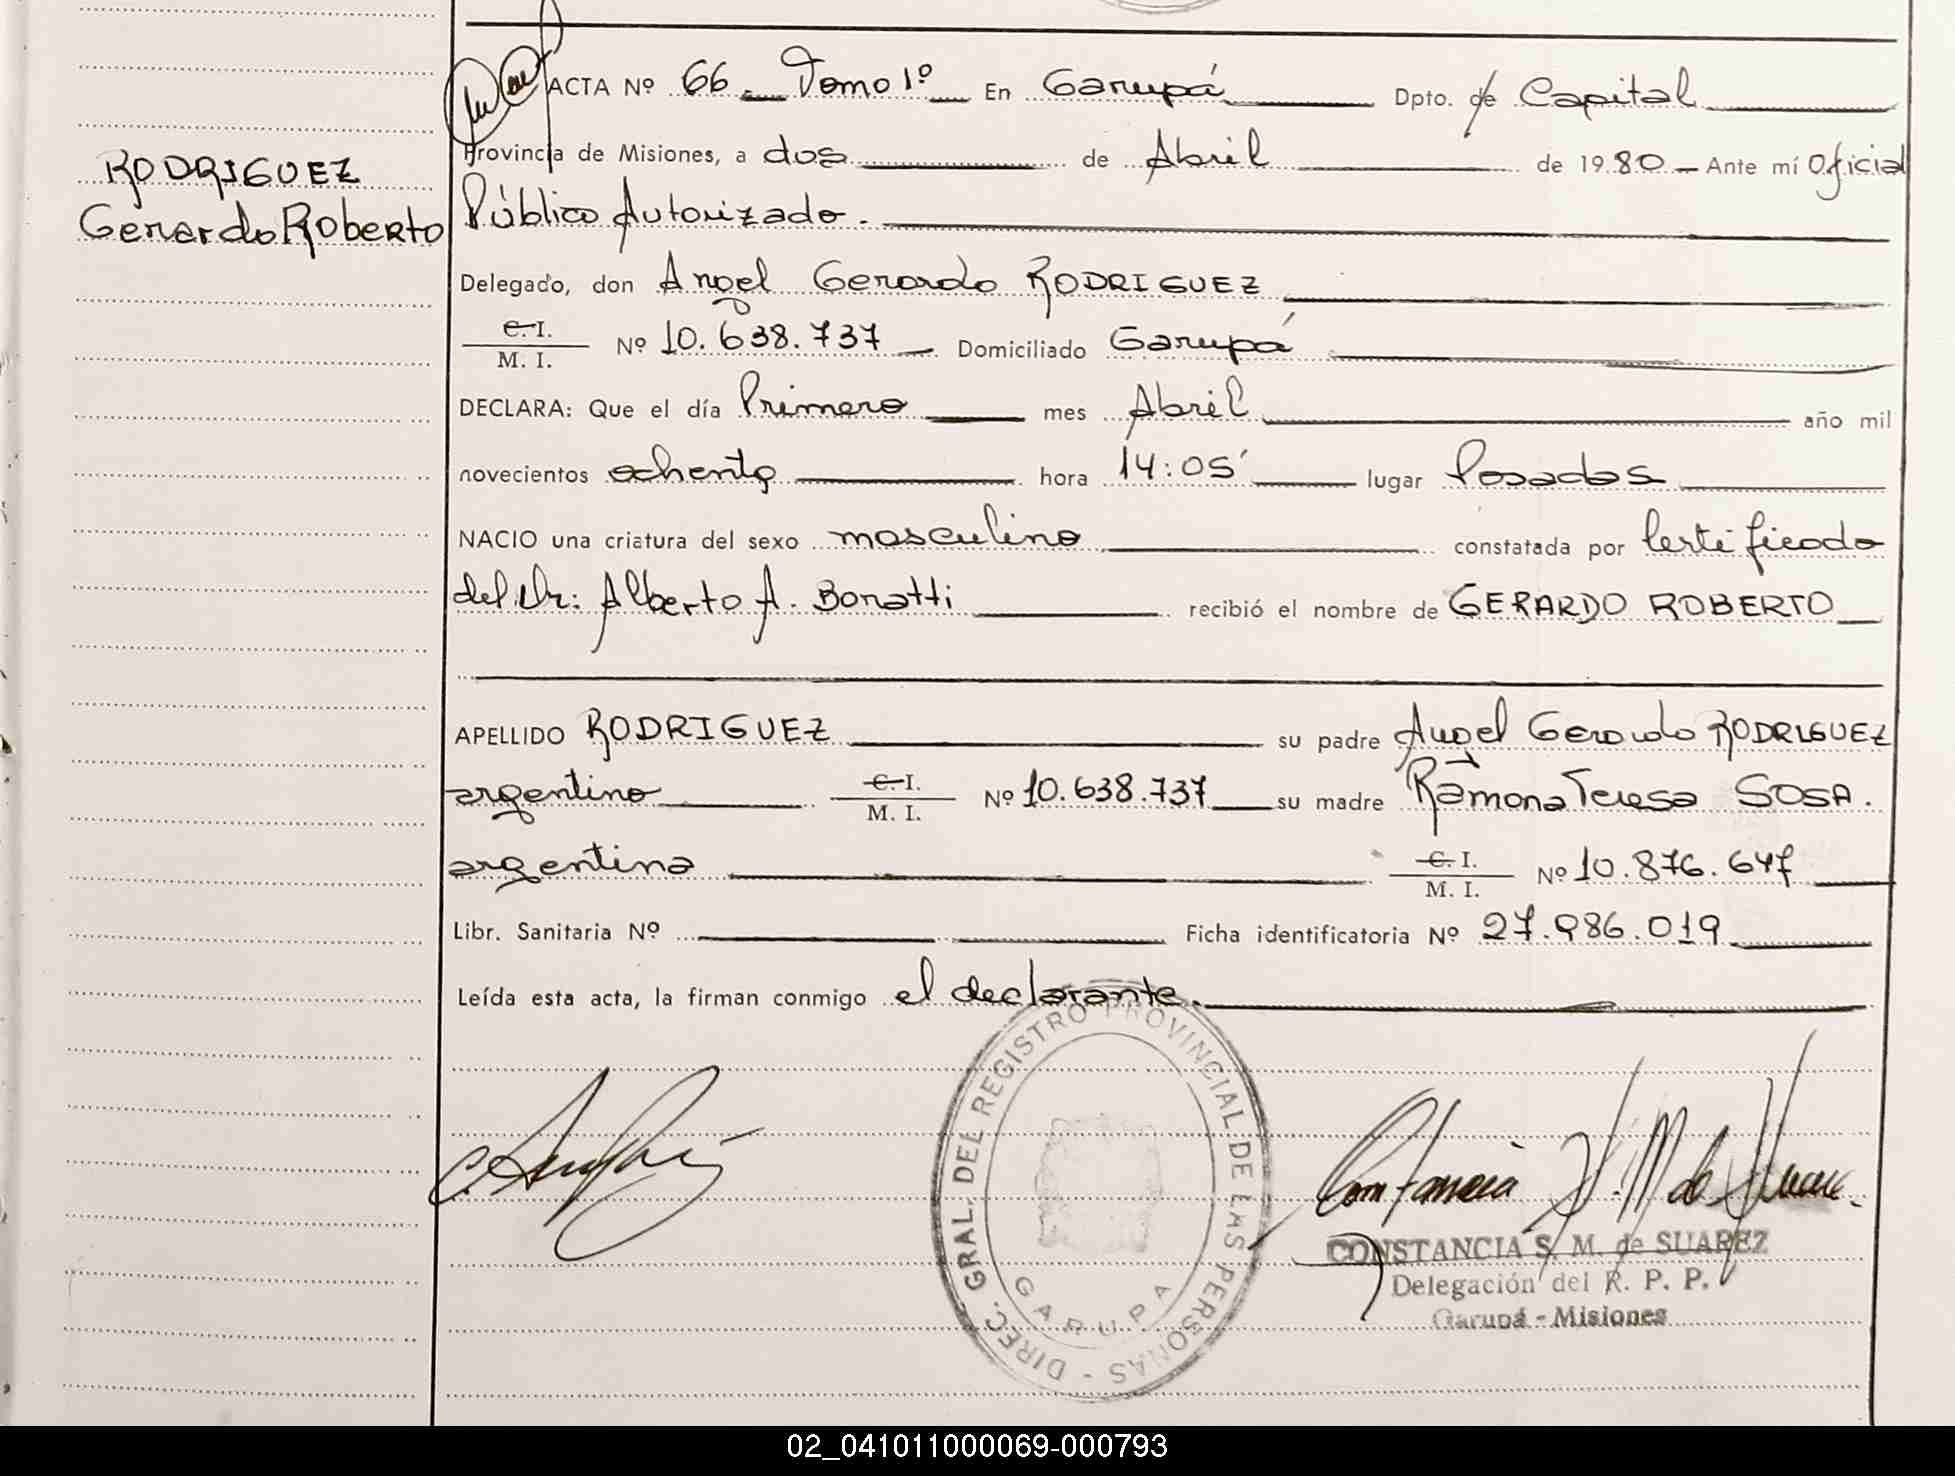 ACTA Nº 66 Tomo 1º En Garupá Dpto. de Capital
Provincia de Misiones, a dos de Abril de 1980 Ante mí Oficial
RODRIGUEZ
Gerardo Roberto
Público Autorizado.
Delegado, don Angel Gerardo RODRIGUEZ
C.I.
M. I.
Nº 10.638.737 Domiciliado Garupá
DECLARA: Que el día Primero mes Abril año mil
novecientos ochenta hora 14:05' lugar Posadas
NACIO una criatura del sexo masculino constatada por Certificado
del Dr: Alberto A. Bonatti recibió el nombre de GERARDO ROBERTO
APELLIDO RODRIGUEZ su padre Angel Gerardo RODRIGUEZ
argentino C.I. M. I. Nº 10.638.737 su madre Ramona Teresa SOSA.
argentina C. I. M. I. Nº 10.876.647
Libr. Sanitaria Nº Ficha identificatoria Nº 27.986.019
Leída esta acta, la firman conmigo el declarante.
DIREC. GRAL. DEL REGISTRO PROVINCIAL DE LAS PERSONAS -
GARUPA
Constancia S. M. de Suarez.
CONSTANCIA S. M. de SUAREZ
Delegación del R. P. P.
Garupá - Misiones
02_041011000069-000793